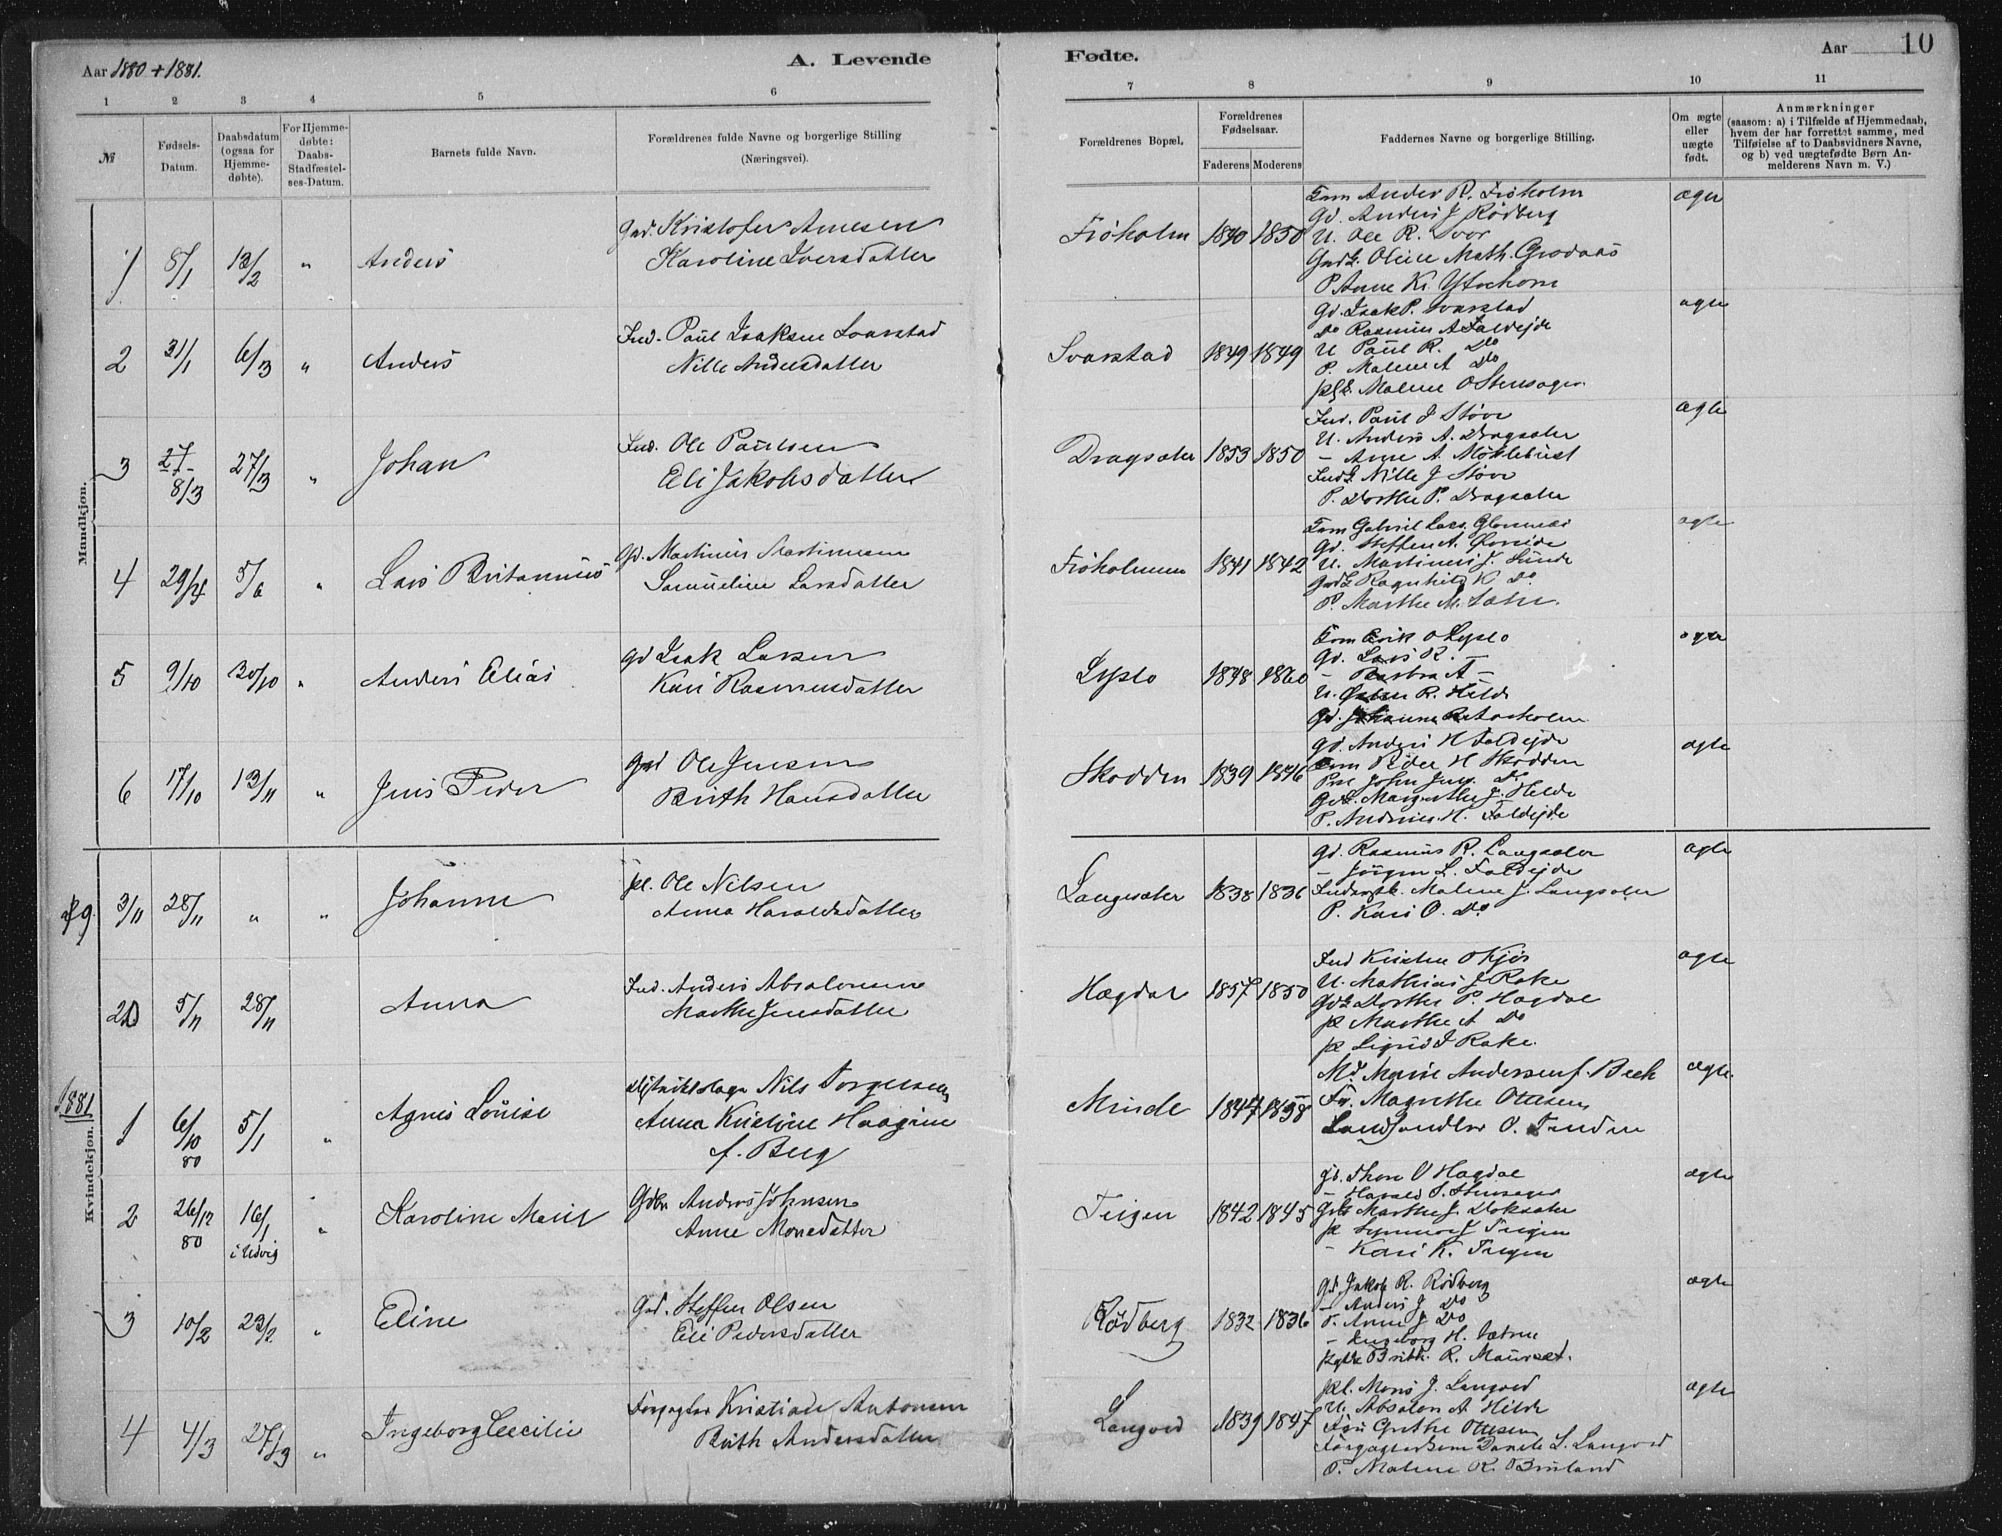 Aar 1880 + 1881.
A. Levende
Fødte.
Aar
10
1 2 3 4 5 6 7 8 9 10 11
№
Fødsels-
Datum.
Daabsdatum
(ogsaa for
Hjemme-
døbte).
For Hjemme-
døbte:
Daabs-
Stadfæstel-
ses-Datum.
Barnets fulde Navn.
Forældrenes fulde Navne og borgerlige Stilling
(Næringsvei).
Forældrenes Bopæl.
Forældrenes
Fødselsaar.
Faderens Moderens
Faddernes Navne og borgerlige Stilling.
Om ægte
eller
uægte
født.
Anmærkninger
(saasom: a) i Tilfælde af Hjemmedaab,
hvem der har forrettet samme, med
Tilføielse af to Daabsvidners Navne,
og b) ved uægtefødte Børn An-
melderens Navn m. V.)
Mandkjøn.
1 8/1 13/2 " Anders
Gmd. Kristofer Arnesen
Karoline Iversdatter
Frøholm 1840 1850
Fom Anders R. Frøholm
Gd. Anders J Rødberg
U. Ole R. Svor
Gmdk. Oline Math. Grodaas
P Anne K. Ytrehorn
ægte
2 31/1 6/3 " Anders
Ind. Paul Isaksen Svarstad
Nille Andersdatter
Svarstad 1849 1849
Gd. Isak P. Svarstad
Do Rasmus A Faldejde
U Paul R. Do
P. Malene A Do
Malene O Stensager
ægte
3 27/ 8/3 27/3 " Johan
Ind. Ole Paulsen
Eli Jakobsdatter
Dragsæter 1853 1850
Ind. Paul J Støve
U. Anders A. Dragsæter
- Anne A. Myklebust
Indk. Nille J Støve
P. Dorthe P. Dragsæter
ægte
4 29/4 5/6 " Lars Britanius
Gd. Martinus Martinusen
Samueline Larsdatter
Frøholmen 1841 1842
Fom Gabriel Lars.
Gd. Steffen A.
U. Martinus J. Lunde
Gmdk Ragnhild K Do
P. Marthe M. Sætre.
ægte
5 9/10 30/10 " Anders Elias
Gd Isak Larsen
Kari Rasmusdatter
Lyslo 1848 1860
Fom Erik O Lyslo
Gd. Lars R. —
- Barbra A —
U. R. Hilde
Gd. Johanne R.
ægte
6 17/10 13/11 " Jens Peder
Gmd Ole Jensen
Brith Hansdatter
Skodden 1839 1846
Gd. Anders H Faldejde
Fom Peder H Skodden
John Jens. Do
Gdk. Margrethe J. Hilde
P. Andrine H. Faldejde
ægte
9. 3/11 28/11 " " Johanne
pl. Ole Nilsen
Anna Haraldsdatter
Langesæter 1838 1836
Gd. Rasmus R. Langsæter
- Jörgen L. Faldejde
Inderstk. Malene J. Langsæter
P. Kari O. Do
ægte
5/11 28/11 Anna
Ind. Anders Absalonsen
Marthe Jensdatter
Hægdal 1857 1850
Ind Kristen O Kjøs
U. Mathias J Rake
Gdk Dorthe P. Hægdal
P Marthe A Do
P Sigrid J Rake.
ægte
1881
Kvindekjøn.
1 6/10 80 5/1 " Agnes Louise
Distriktslæge Nils Torgersen
Anna Kristine Haagine
f. Berg
Minde 1847 1858
Md. Marie Andersen f. Beck
Fr. Magrethe Ottesen
Landhandler O. Tenden
ægte.
2 26/12 80 16/1 i Udvig " Karoline Marie
Gdbr Anders Johnsen
Anne Monsdatter
Teigen 1842 1845
Gd. Thore O Hægdal
- Harald S. Stensager
Gdk Marthe J. Doksæter
P Synneve J Teigen
- Kari K. Teigen
ægte
3 10/2 23/2 " Eline
Gmd. Steffen Olsen
Eli Pedersdatter
Rødberg 1832 1836
Gd. Jakob R. Rødberg
- Anders J Do
P. Anne J Do
- Ingeborg H. Sætre
Brith. R. Maurset.
ægte
4 4/3 27/3 " Ingeborg Cecilie
Forpagter Kristian Antonsen
Brith Andersdatter
Langvod 1839 1847
pl. Mons J. Langvod
U. Absalon A Hilde
Fru Grethe Ottesen
Forpagterkone Danele L. Langvod
P. Malene R. Bruland
ægte